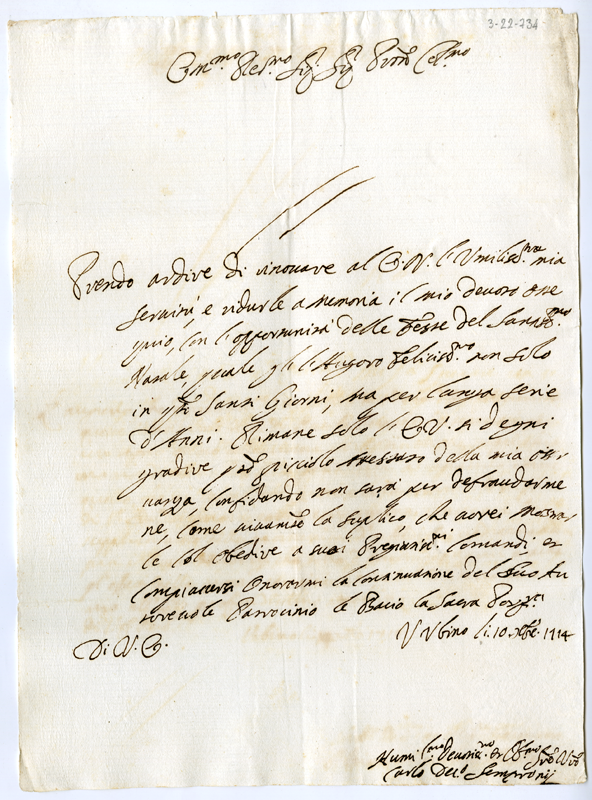 3-22-734
Em.mo Rev.mo Sig. Sig. Pron Col.mo
Prendo ardire di rinovare al E. V. l'Umiliss.ma mia
servitù, e ridurle a memoria il mio devoto osse
quio, con l'opportunità delle Feste del Santiss.mo
Natale, quale gli li Auguro Feliciss.mo non solo
in q.ti Santi Giorni, ma per lunga serie
d'Anni. Rimane solo l'E. V. si degni
gradire q.to picciolo attestato della mia osser
vanza, confidando non sarà per defraudarme
ne, come vivam.te la suplico, che avrei mostra
le col obedire a suoi Pregiatiss.mi Comandi et
compiacersi onorarmi la continuatione del suo Au
torevole Patrocinio le Bacio la Sacra Porpora
Di V. E.
Urbino li 10 Xbre 1714
Humiliss.mo Devotiss.mo et Obl.mo Ser.
Carlo Semproni